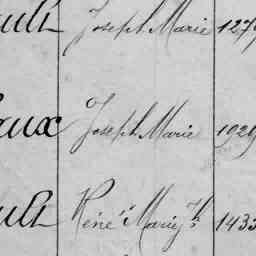 ault Joseph Marie 127
aux Joseph Marie 1929
ault René Marie 1433